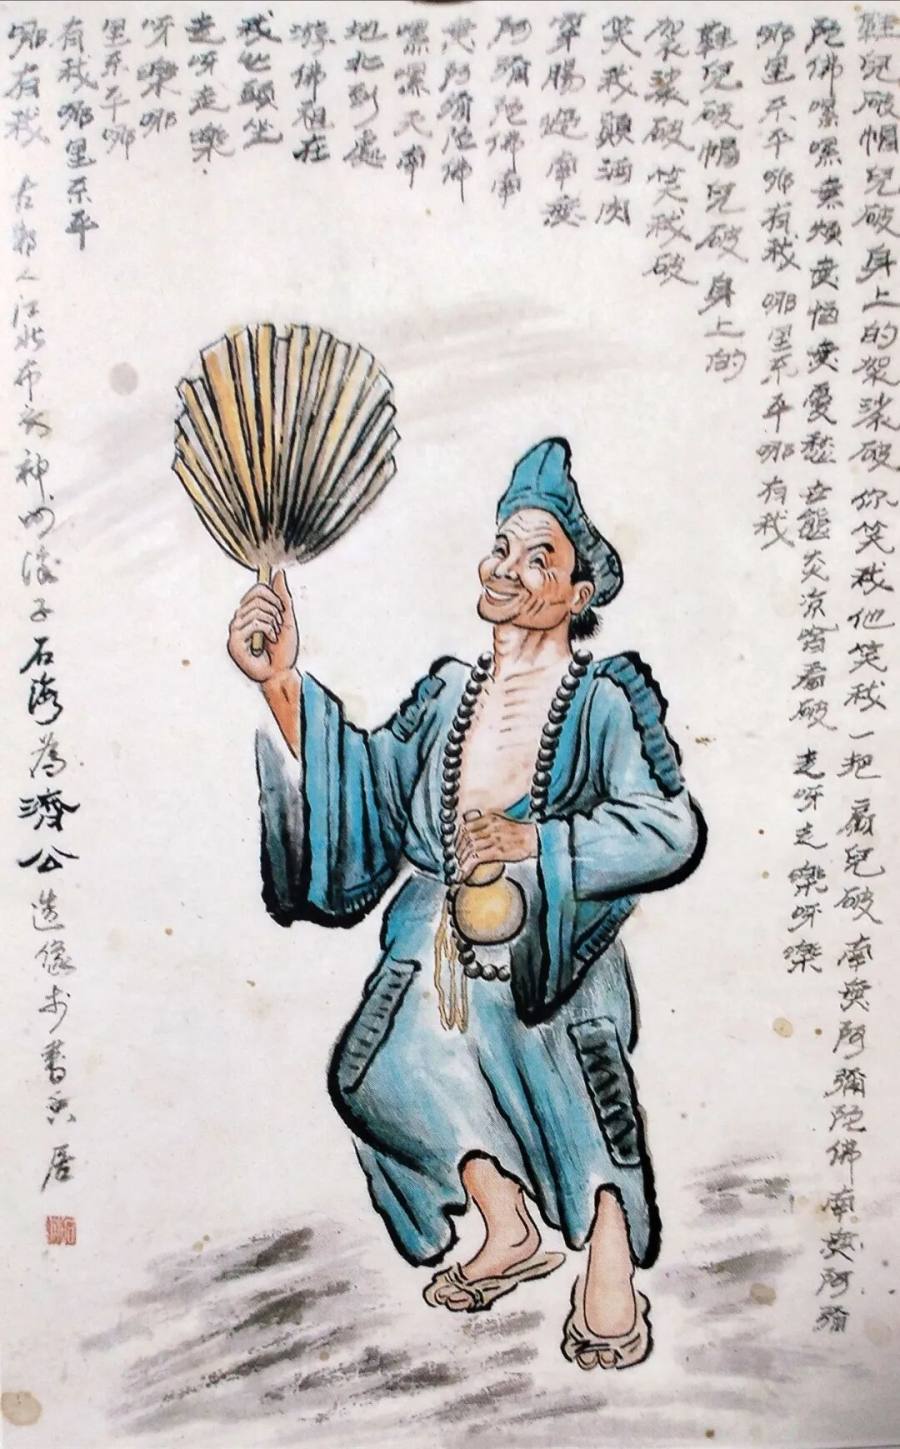 鞋兒破帽兒破身上的袈裟破你笑我他笑我一把扇兒破南無阿彌陀佛南無阿彌
陀佛嘿嘿無煩無惱無憂愁世態炎涼皆看破走呀走樂呀樂
哪里不平哪有我哪里不平哪有我
鞋兒破帽兒破身上的
袈裟破笑我破
笑我顛酒肉
穿腸過南無
阿彌陀佛南
無阿彌陀佛
嘿嘿天南
地北到處
游佛祖在
我心頭坐
走呀走樂
呀樂哪
里不平哪
有我哪里不平
哪有我 古人江北布衣神州子石海為濟公造像於書香居